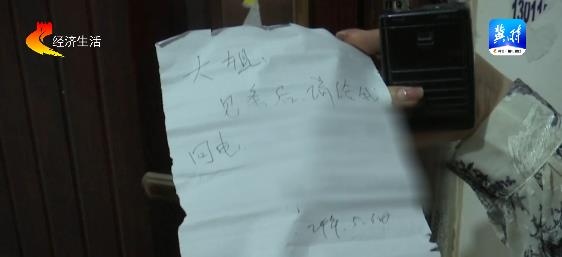 经济生活
冀时
13011
大姐.
见条后,请给我
回电.